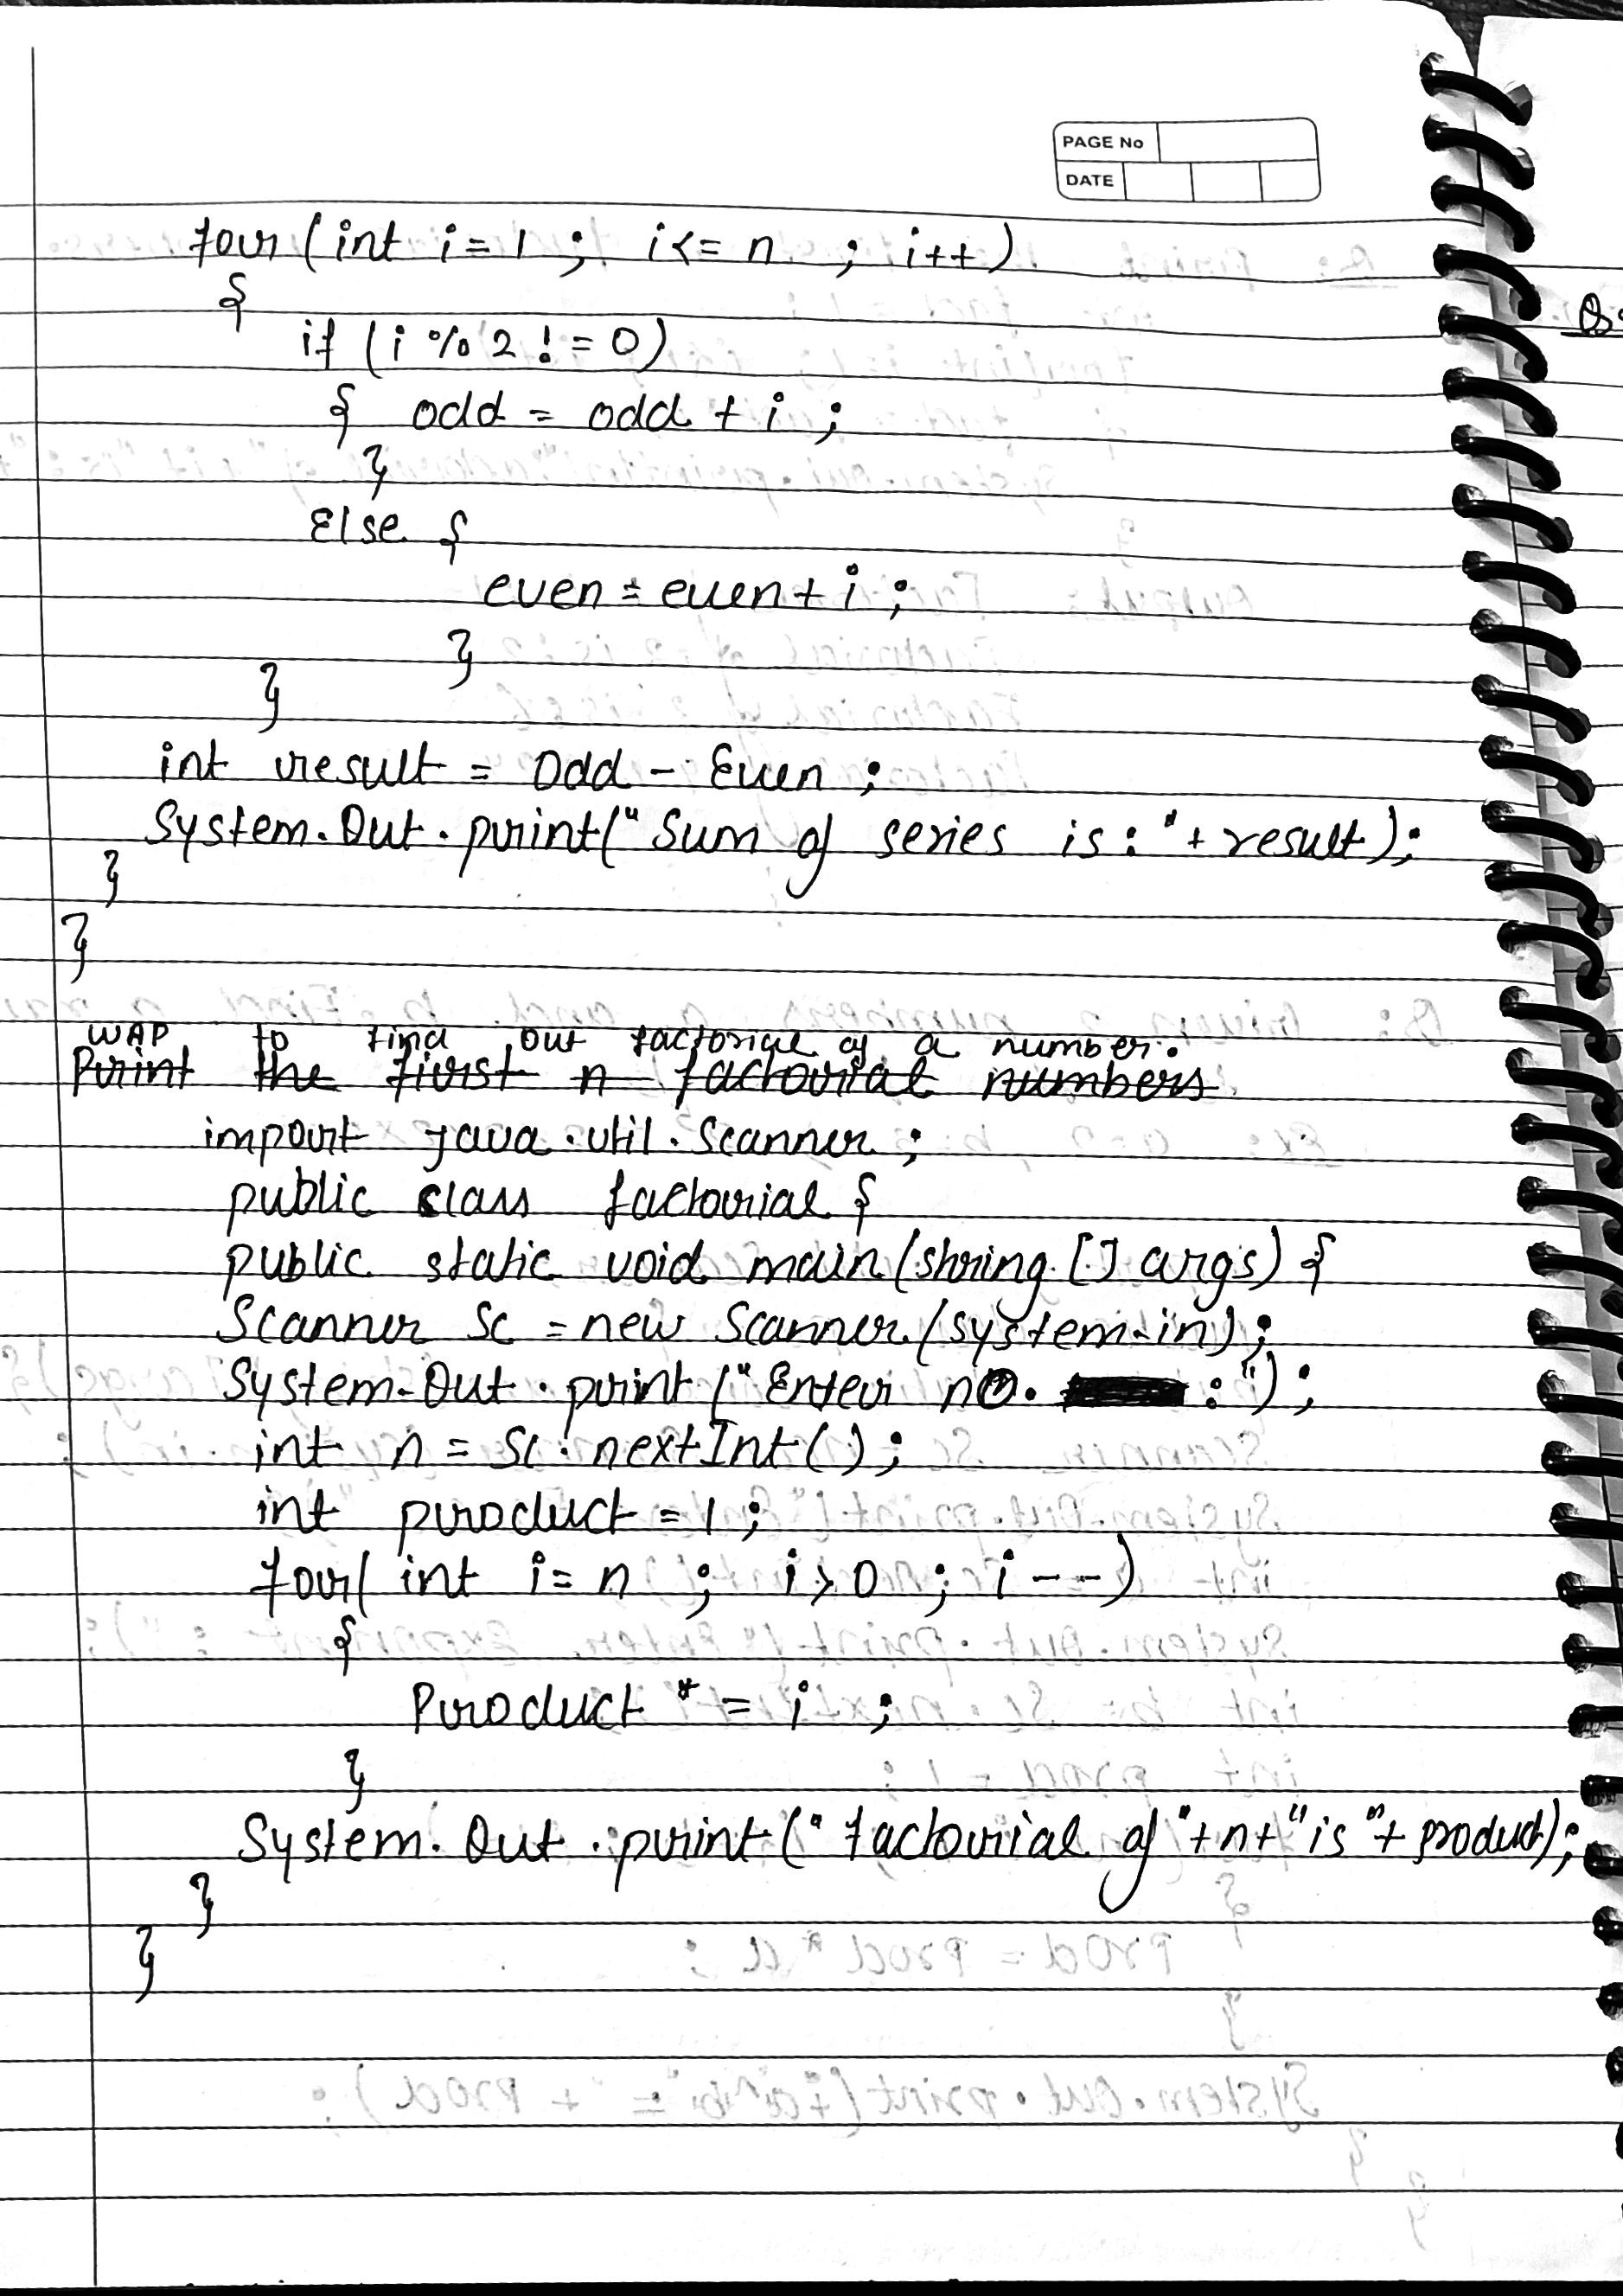 PAGE No
DATE
for (int i = 1 ; i <= n ; i++)
{
if (i % 2 ! = 0)
{ odd = odd + i ;
}
Else {
even = even + i ;
}
}
int result = Odd - Even ;
System.Out.print("Sum of series is : "+ result);
}
}
WAP to find out factorial of a number.
Print the first n factorial numbers
import java.util.Scanner ;
public class factorial {
public static void main(string [] args) {
Scanner Sc = new Scanner (system.in) ;
System.Out.print ("Enter no. : ") ;
int n = Sc . nextInt () ;
int product = 1 ;
for( int i = n ; i > 0 ; i --)
{
Product * = i ;
}
System. Out . print (" factorial of "+n+" is "+ product) ;
}
}